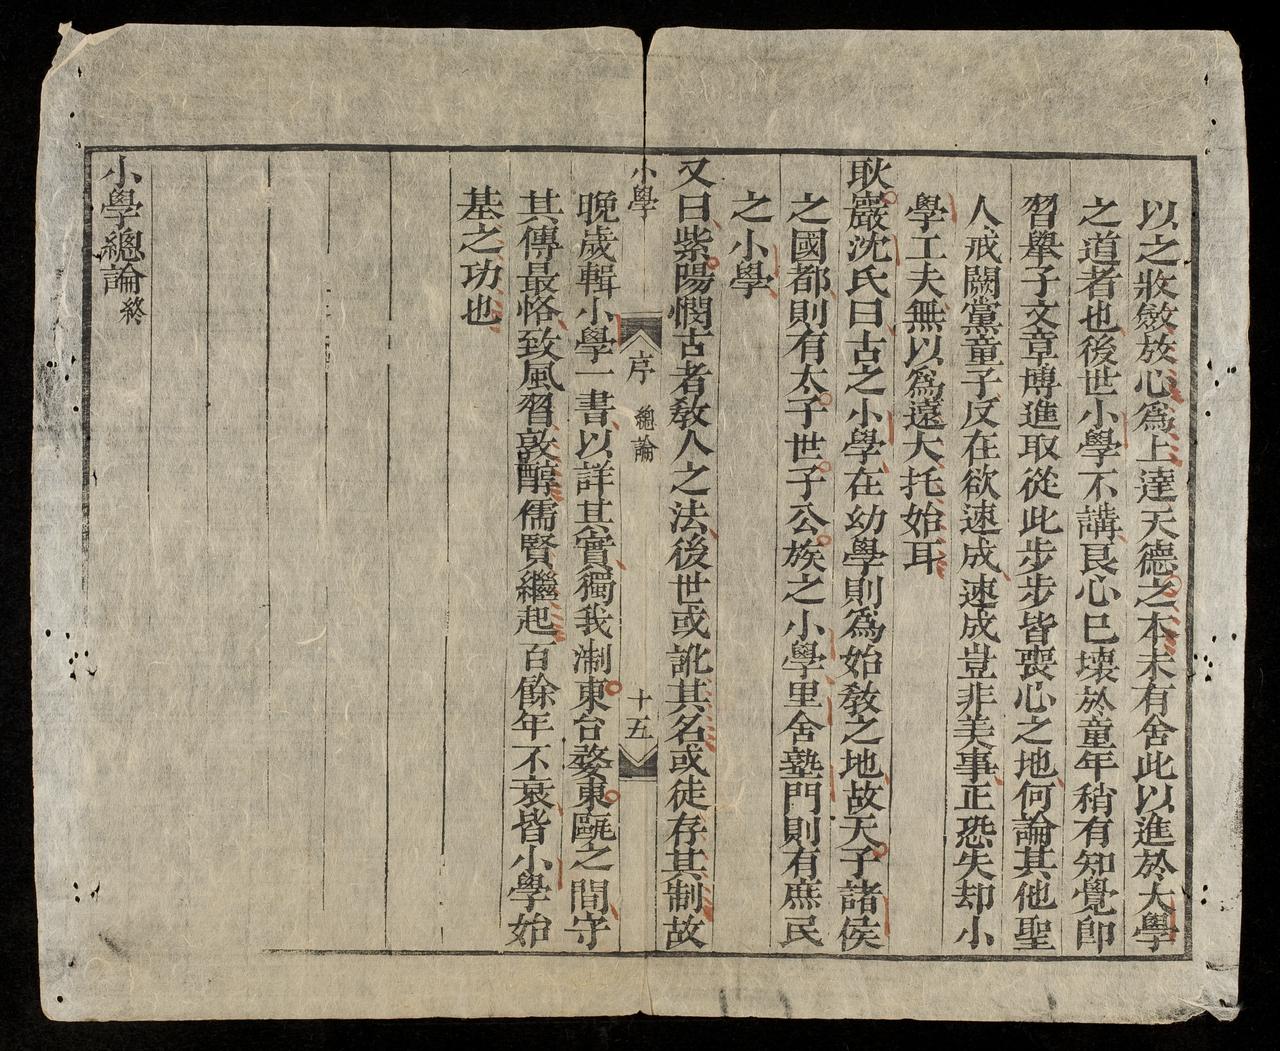 以之收斂放心爲上達天德之本未有舍此以進於大學
之道者也後世小學不講良心已壞於童年稍有知覺卽
習舉子文章博進取從此步步皆喪心之地何論其他聖
人戒闕黨童子反在欲速成速成豈非美事正恐失却小
學工夫無以爲遠大托始耳
耿巖沈氏曰古之小學在幼學則爲始敎之地故天子諸侯
之國都則有太子世子公族之小學里舍塾門則有庶民
之小學
又曰紫陽憫古者敎人之法後世或訛其名或徒存其制故
小學 序 總論 十五
晚歲輯小學一書以詳其實獨我浙東台婺東甌之間守
其傳最恪致風習敦醇儒賢繼起百餘年不衰皆小學始
基之功也
小學總論終